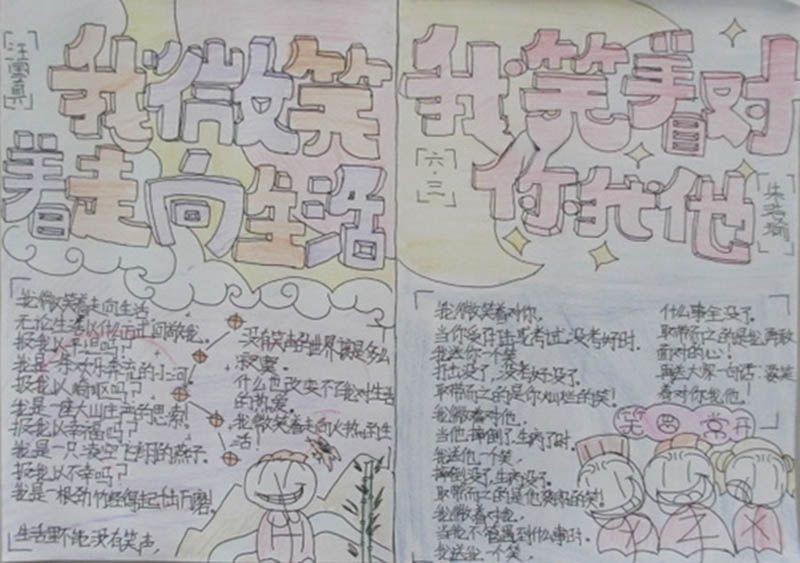 我微笑
着走向生活
我微笑着走向生活,
无论生活以什么方式回敬我。
报我以平坦吗?
我是一条欢乐奔流的小河。
报我以崎岖吗?
我是一座大山庄严的思索!
报我以幸福吗?
我是一只凌空飞翔的燕子。
报我以不幸吗?
我是一根劲竹经得起千击万磨!
生活里不能没有笑声,
没有笑声的世界该是多么
寂寞。
什么也改变不了我对生活
的热爱。
我微笑着走向火热的生
活!
我笑着对
你我他
六·三
我微笑着对你,
当你受打击或考试没考好时。
我送你一个笑,
打击没了,没考好没了。
取带而之的是你灿烂的笑!
我微着对他,
当他摔倒了生病了时。
我送他一个笑,
摔倒没了,生病没了。
取带而之的是他的笑!
我微着对她,
当她不管遇到什么事时,
我送她一个笑,
什么事全没了。
取带而之的是我勇敢
面对的心!
再送大家一句话:要笑
着对你我他!
笑口常开